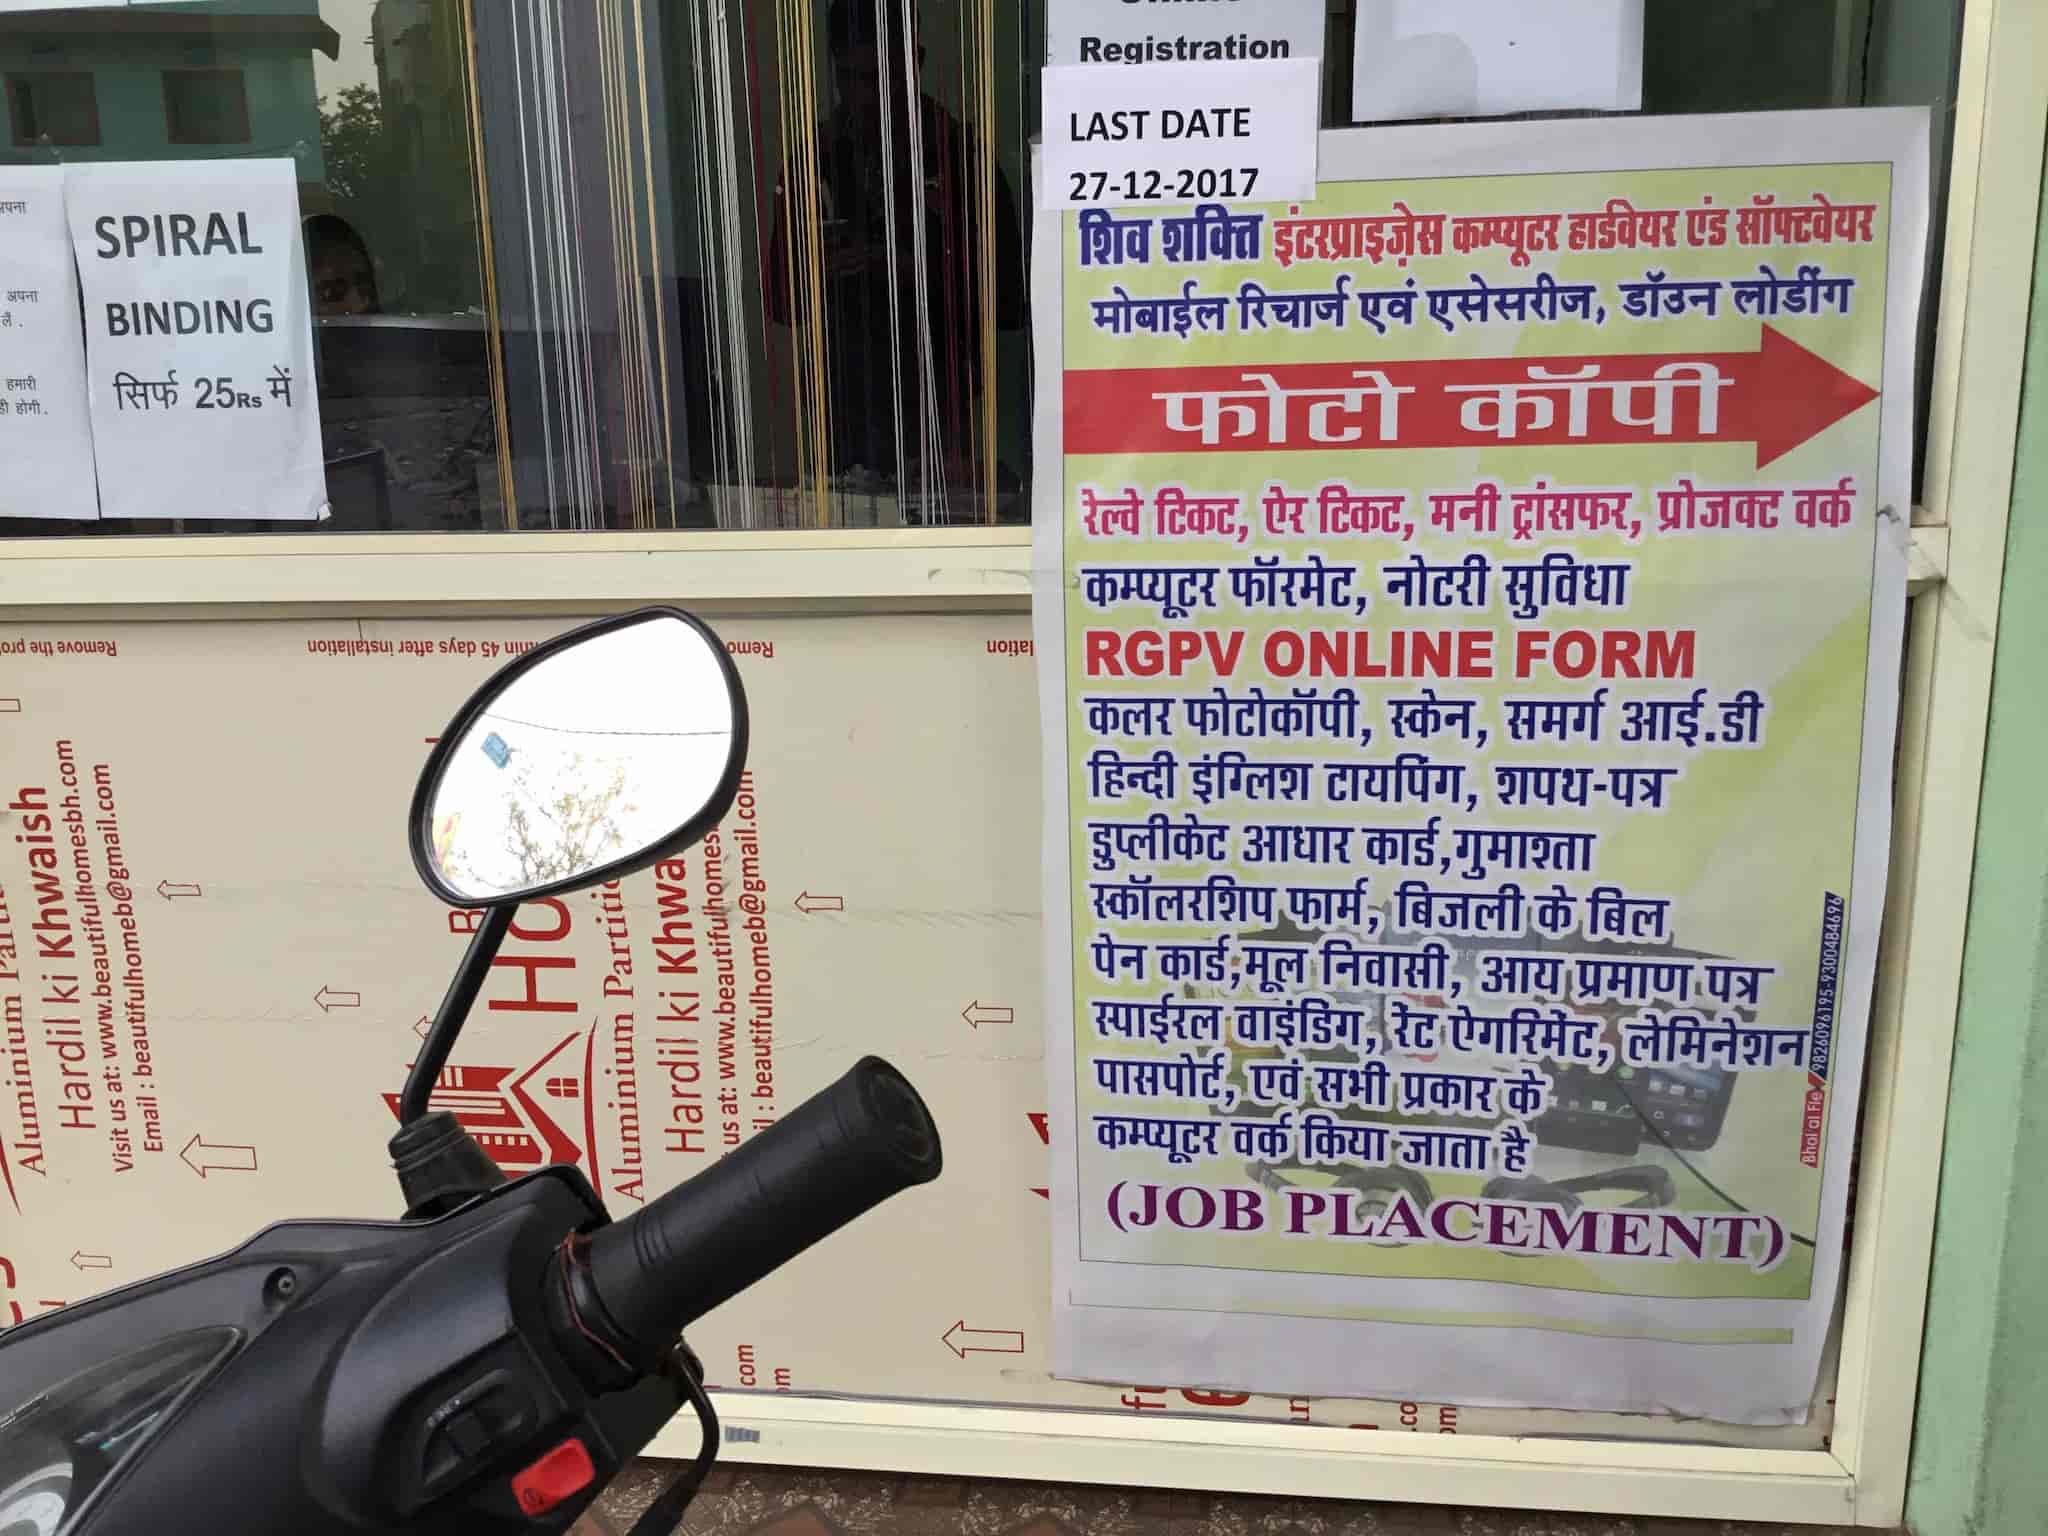 अपना
अपना
लें .
हमारी
ही होगी.
SPIRAL
BINDING
सिर्फ 25Rs में
Registration
LAST DATE
27-12-2017
शिव शक्ति इंटरप्राइज़ेस कम्प्यूटर हार्डवेयर एंड सॉफ्टवेयर
मोबाईल रिचार्ज एवं एसेसरीज, डॉउन लोर्डींग
फोटो कॉपी
रेल्वे टिकट, ऐर टिकट, मनी ट्रांसफर, प्रोजक्ट वर्क
कम्प्यूटर फॉरमेट, नोटरी सुविधा
RGPV ONLINE FORM
कलर फोटोकॉपी, स्केन, समर्ग आई.डी
हिन्दी इंग्लिश टायपिंग, शपथ-पत्र
डुप्लीकेट आधार कार्ड,गुमाश्ता
स्कॉलरशिप फार्म, बिजली के बिल
पेन कार्ड,मूल निवासी, आय प्रमाण पत्र
स्पाईरल वाइंडिग, रेंट ऐगरिमेंट, लेमिनेशन
पासपोर्ट, एवं सभी प्रकार के
कम्प्यूटर वर्क किया जाता है
(JOB PLACEMENT)
9826096195-9300484696
Remove the
45 days after installation
Aluminium
Hardil ki Khwaish
Visit us at: www.beautifulhomesbh.com
Email : beautifulhomeb@gmail.com
HO
Aluminium
Hardil ki
us at: www.beautifulhomes
beautifulhomeb@gmail.com